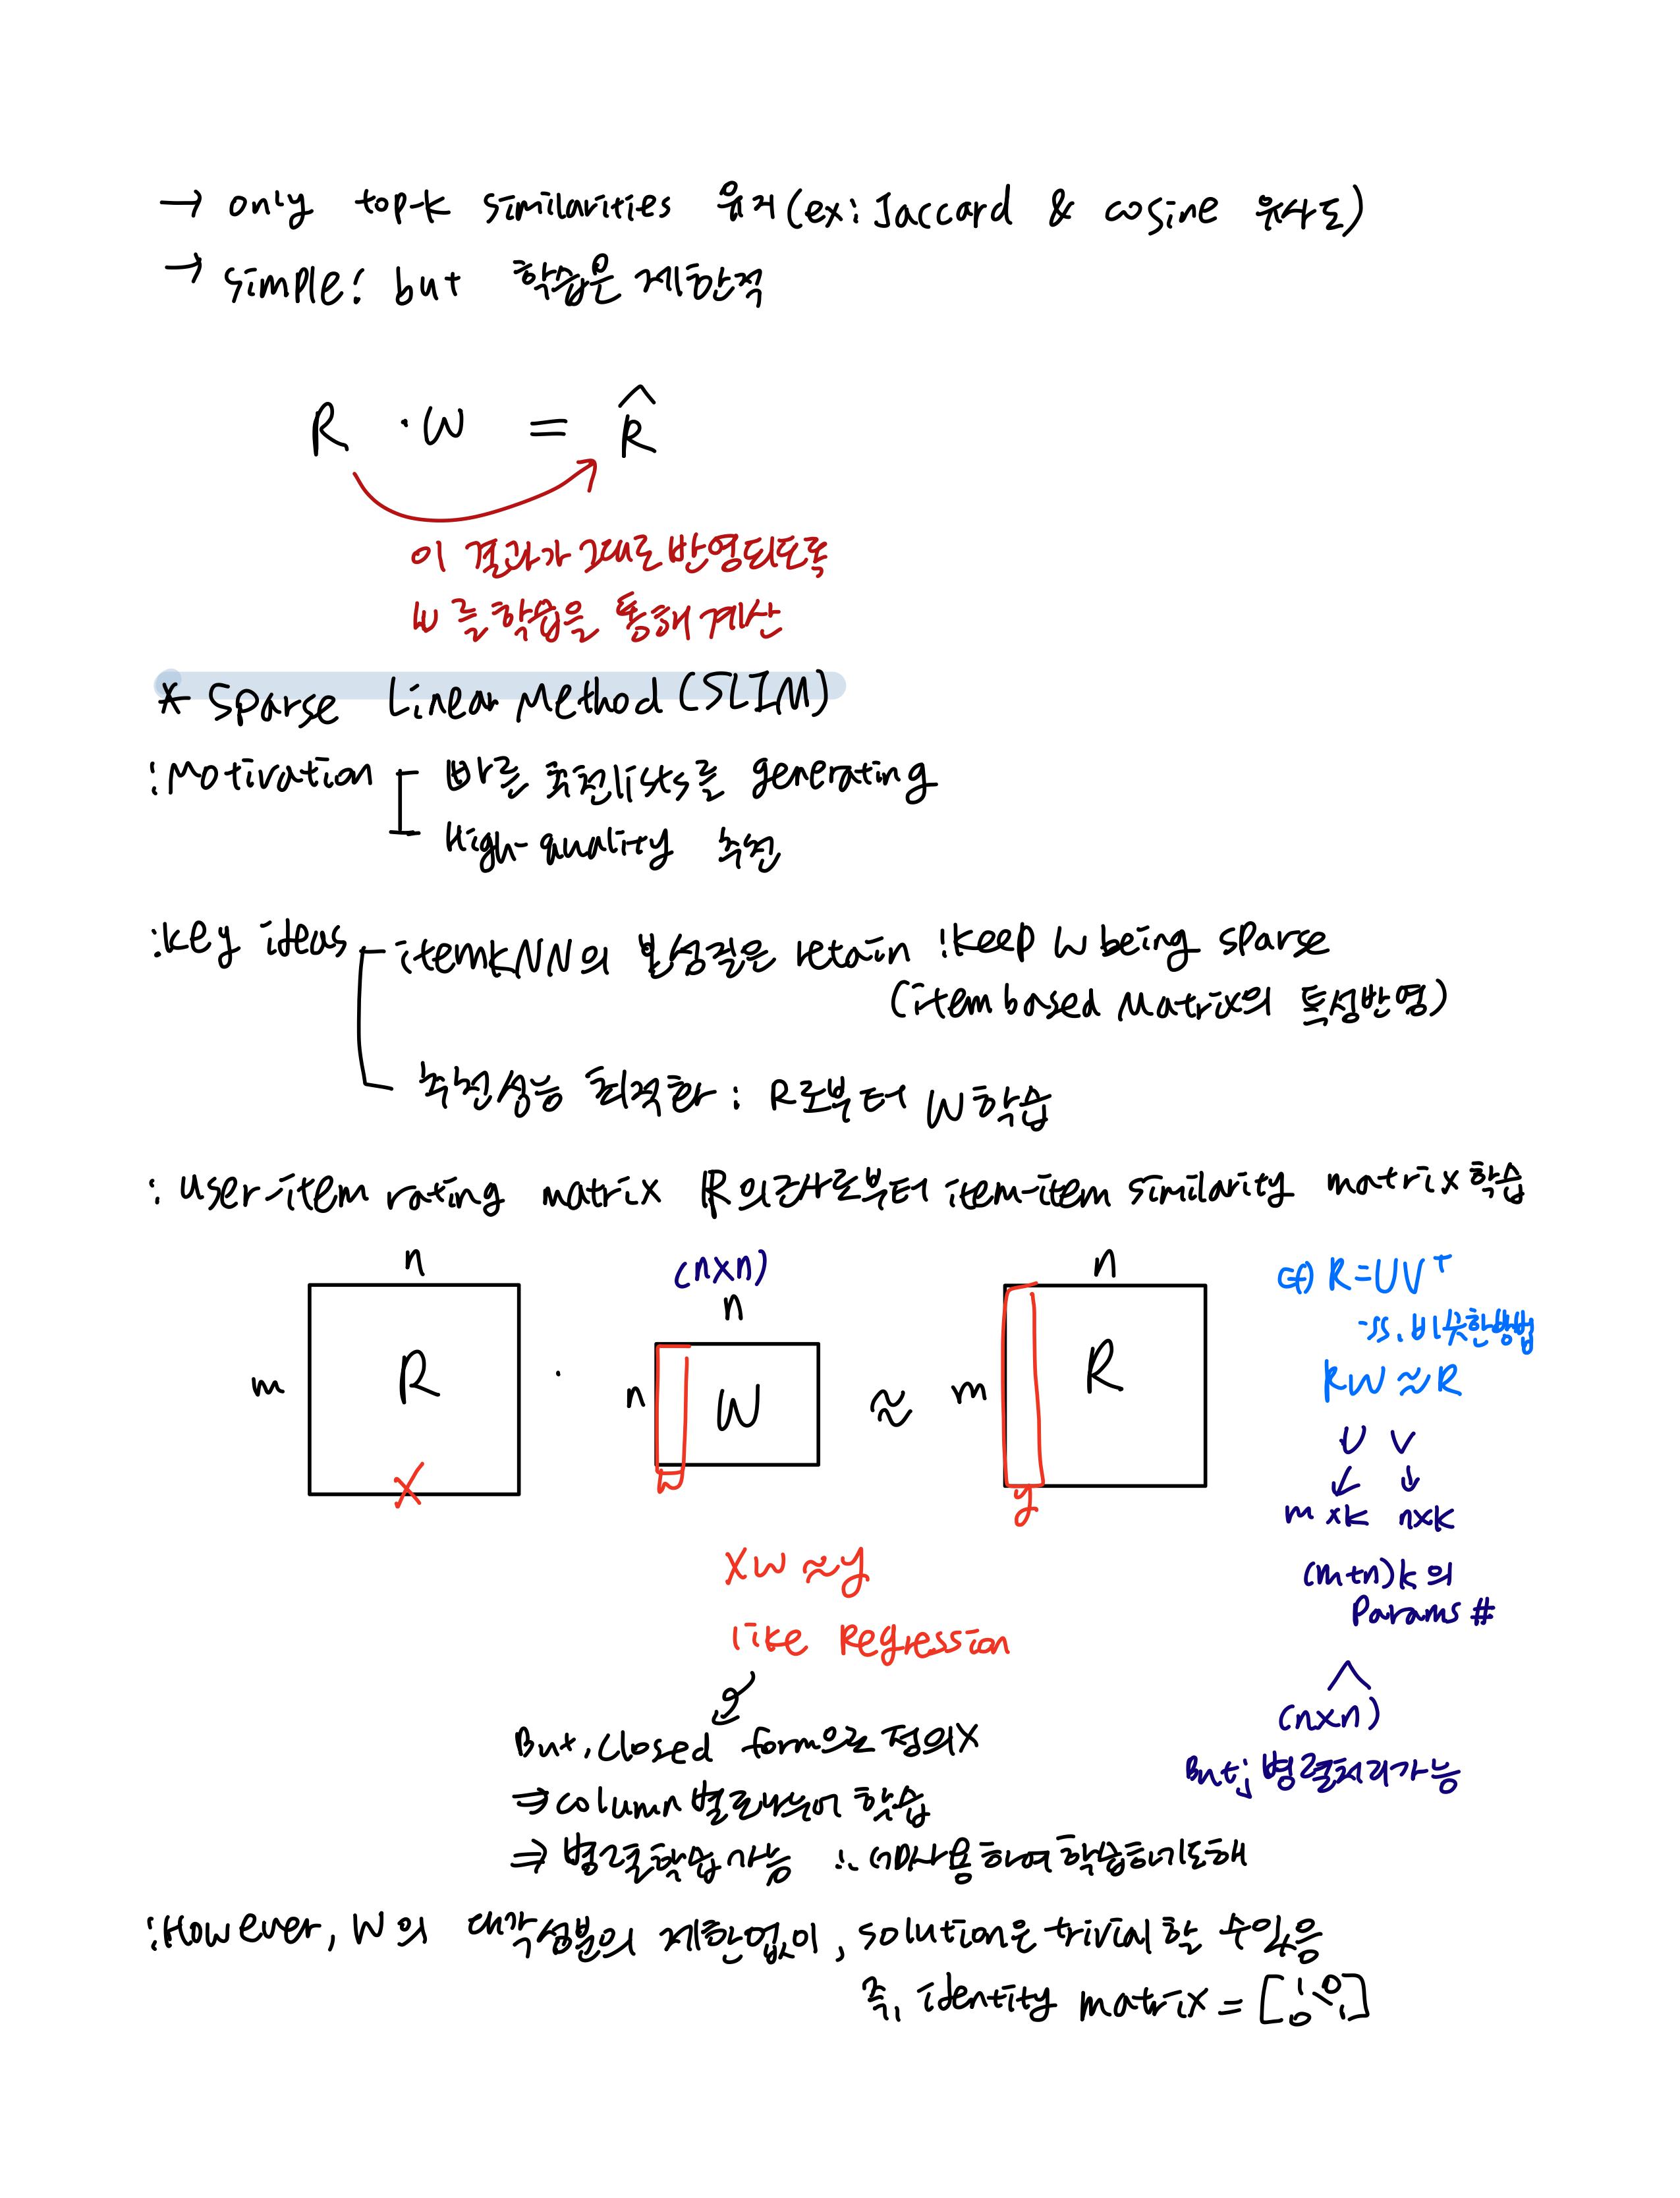 → only top-k similarities 유지(ex: Jaccard & cosine 유사도)
→ simple! but 학습은 제한적
R · W = R̂
이 결과가 그대로 반영되도록
W를 학습을 통해 계산
* Sparse Linear Method (SLIM)
: Motivation
빠른 추천lists를 generating
High-quality 추천
: key ideas
itemKNN의 본성질은 retain : keep W being sparse
(item based Matrix의 특성반영)
추천성능 최적화 : R로부터 W 학습
: user-item rating matrix R의 로부터 item-item similarity matrix 학습
n
(n×n)
n
n
m
R
·
n
W
≈
m
R
X
w
y
cf) R=UVᵀ
비슷한방법
RW≈R
U V
m×k n×k
(m+n)k의
Params #
∧
(n×n)
But; 병렬처리가능
Xw≈y
like Regression
But, closed form으로 정의X
⇒ column별로 나누어 학습
⇒ 병렬학습가능 사용하여 학습하기도해
: However, W의 대각성분의 제한없이, solution은 trivial할 수있음
즉, identity matrix = [1 0 \ 0 1]